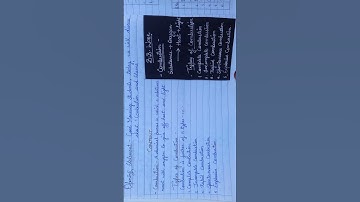 Students, today we will discuss
about Combustion and Flame.
CONTENT
Combustion: A chemical process in which a substance
react with oxygen to give off heat and light
Types of Combustion
Complete Combustion
Incomplete Combustion
Rapid Combustion
Spontaneous Combustion
Explosive Combustion
B.B. Work
Combustion -
Substance + Oxygen
→ Heat + Light
Types of Combustion
Complete Combustion
Incomplete Combustion
Rapid Combustion
Spontaneous Combustion
Explosive Combustion